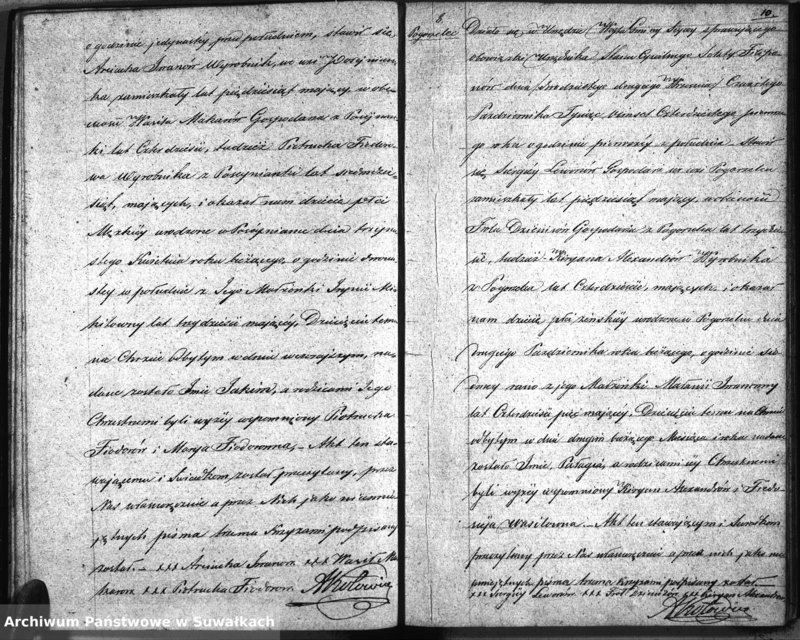 o godzinie jedynastej przed południem, stawił się
Arciucha Iwanów Wyrobnik, we wsi
zamieszkały lat pięćdziesiąt mający, w obe-
cności Wasila Makarów Gospodarza z
lat Czterdzieści, tudzież Piotrucha Fiedoro-
wa Wyrobnika z lat
mających, i okazał nam dziecię płci
Męzkiéy urodzone w dnia trzyna-
stego Kwietnia roku bieżącego, o godzinie dwuna-
stéy w południe z Jego Małżonki Mi-
chiłowny lat trzydzieści mającéy, Dziecięciu temu
na Chrzcie odbytym w dniu wczorajszym, na-
dane zostało Imie Jakim, a rodzicami Jego
Chrzestnemi byli wyżéy wspomniony Piotrucha
Fiodorów i Marya Fiodorowna, – Akt ten sta-
wającemu i Świadkom został przeczytany, przez
Nas własnoręcznie a przez Nich jako nieumie-
jętnych pisma trzema Krzyżami podpisany
został. – xxx Arciucha Iwanow xxx Wasil Ma-
karow xxx Piotrucha Fiodorow
10.
8.
Pogorzelec
Działo się w Urzędzie Wójta Gminy sprawującego
obowiązki Urzędnika Stanu Cywilnego
dnia dwudziestego drugiego Września/Czwartego
Października Tysiąc Ośmset Czterdziestego pierwsze-
go roku o godzinie pierwszéy z południa. Stawił
się, Siergiéy Lewonów Gospodarz we wsi Pogorzelcu
zamieszkały lat pięćdziesiąt mający, w obecności
Frola Dzienisów Gospodarza z Pogorzelca lat trzydzie-
ści, tudzież Kiryana Alexandrów Wyrobnika
z Pogorzelca lat Czterdzieści, mających i okazał
nam dziecię płci żeńskiéy urodzone w Pogorzelcu dnia
drugiego Października roku bieżącego, o godzinie sió-
dméy rano z jego Małżonki Małanii Iwanowny
lat Czterdzieści pięć mającéy. Dziecięciu temu na Chrzcie
odbytym w dniu drugim bieżącego Miesiąca i roku nadane
zostało Imie, Pałagia, a rodzicami iéy Chrzestnemi
byli wyżéy wspomniony Kiryan Alexandrów i Fiedo-
Wasilowna. – Akt ten stawającym i Świadkom
przeczytany przez Nas własnoręcznie a przez nich jako nie-
umiejętnych pisma trzema krzyżami podpisany został
xxx Siergiey Lewonow xxx Frol Dzienisow xxx Kiryan Alexandrow
Archiwum Państwowe w Suwałkach